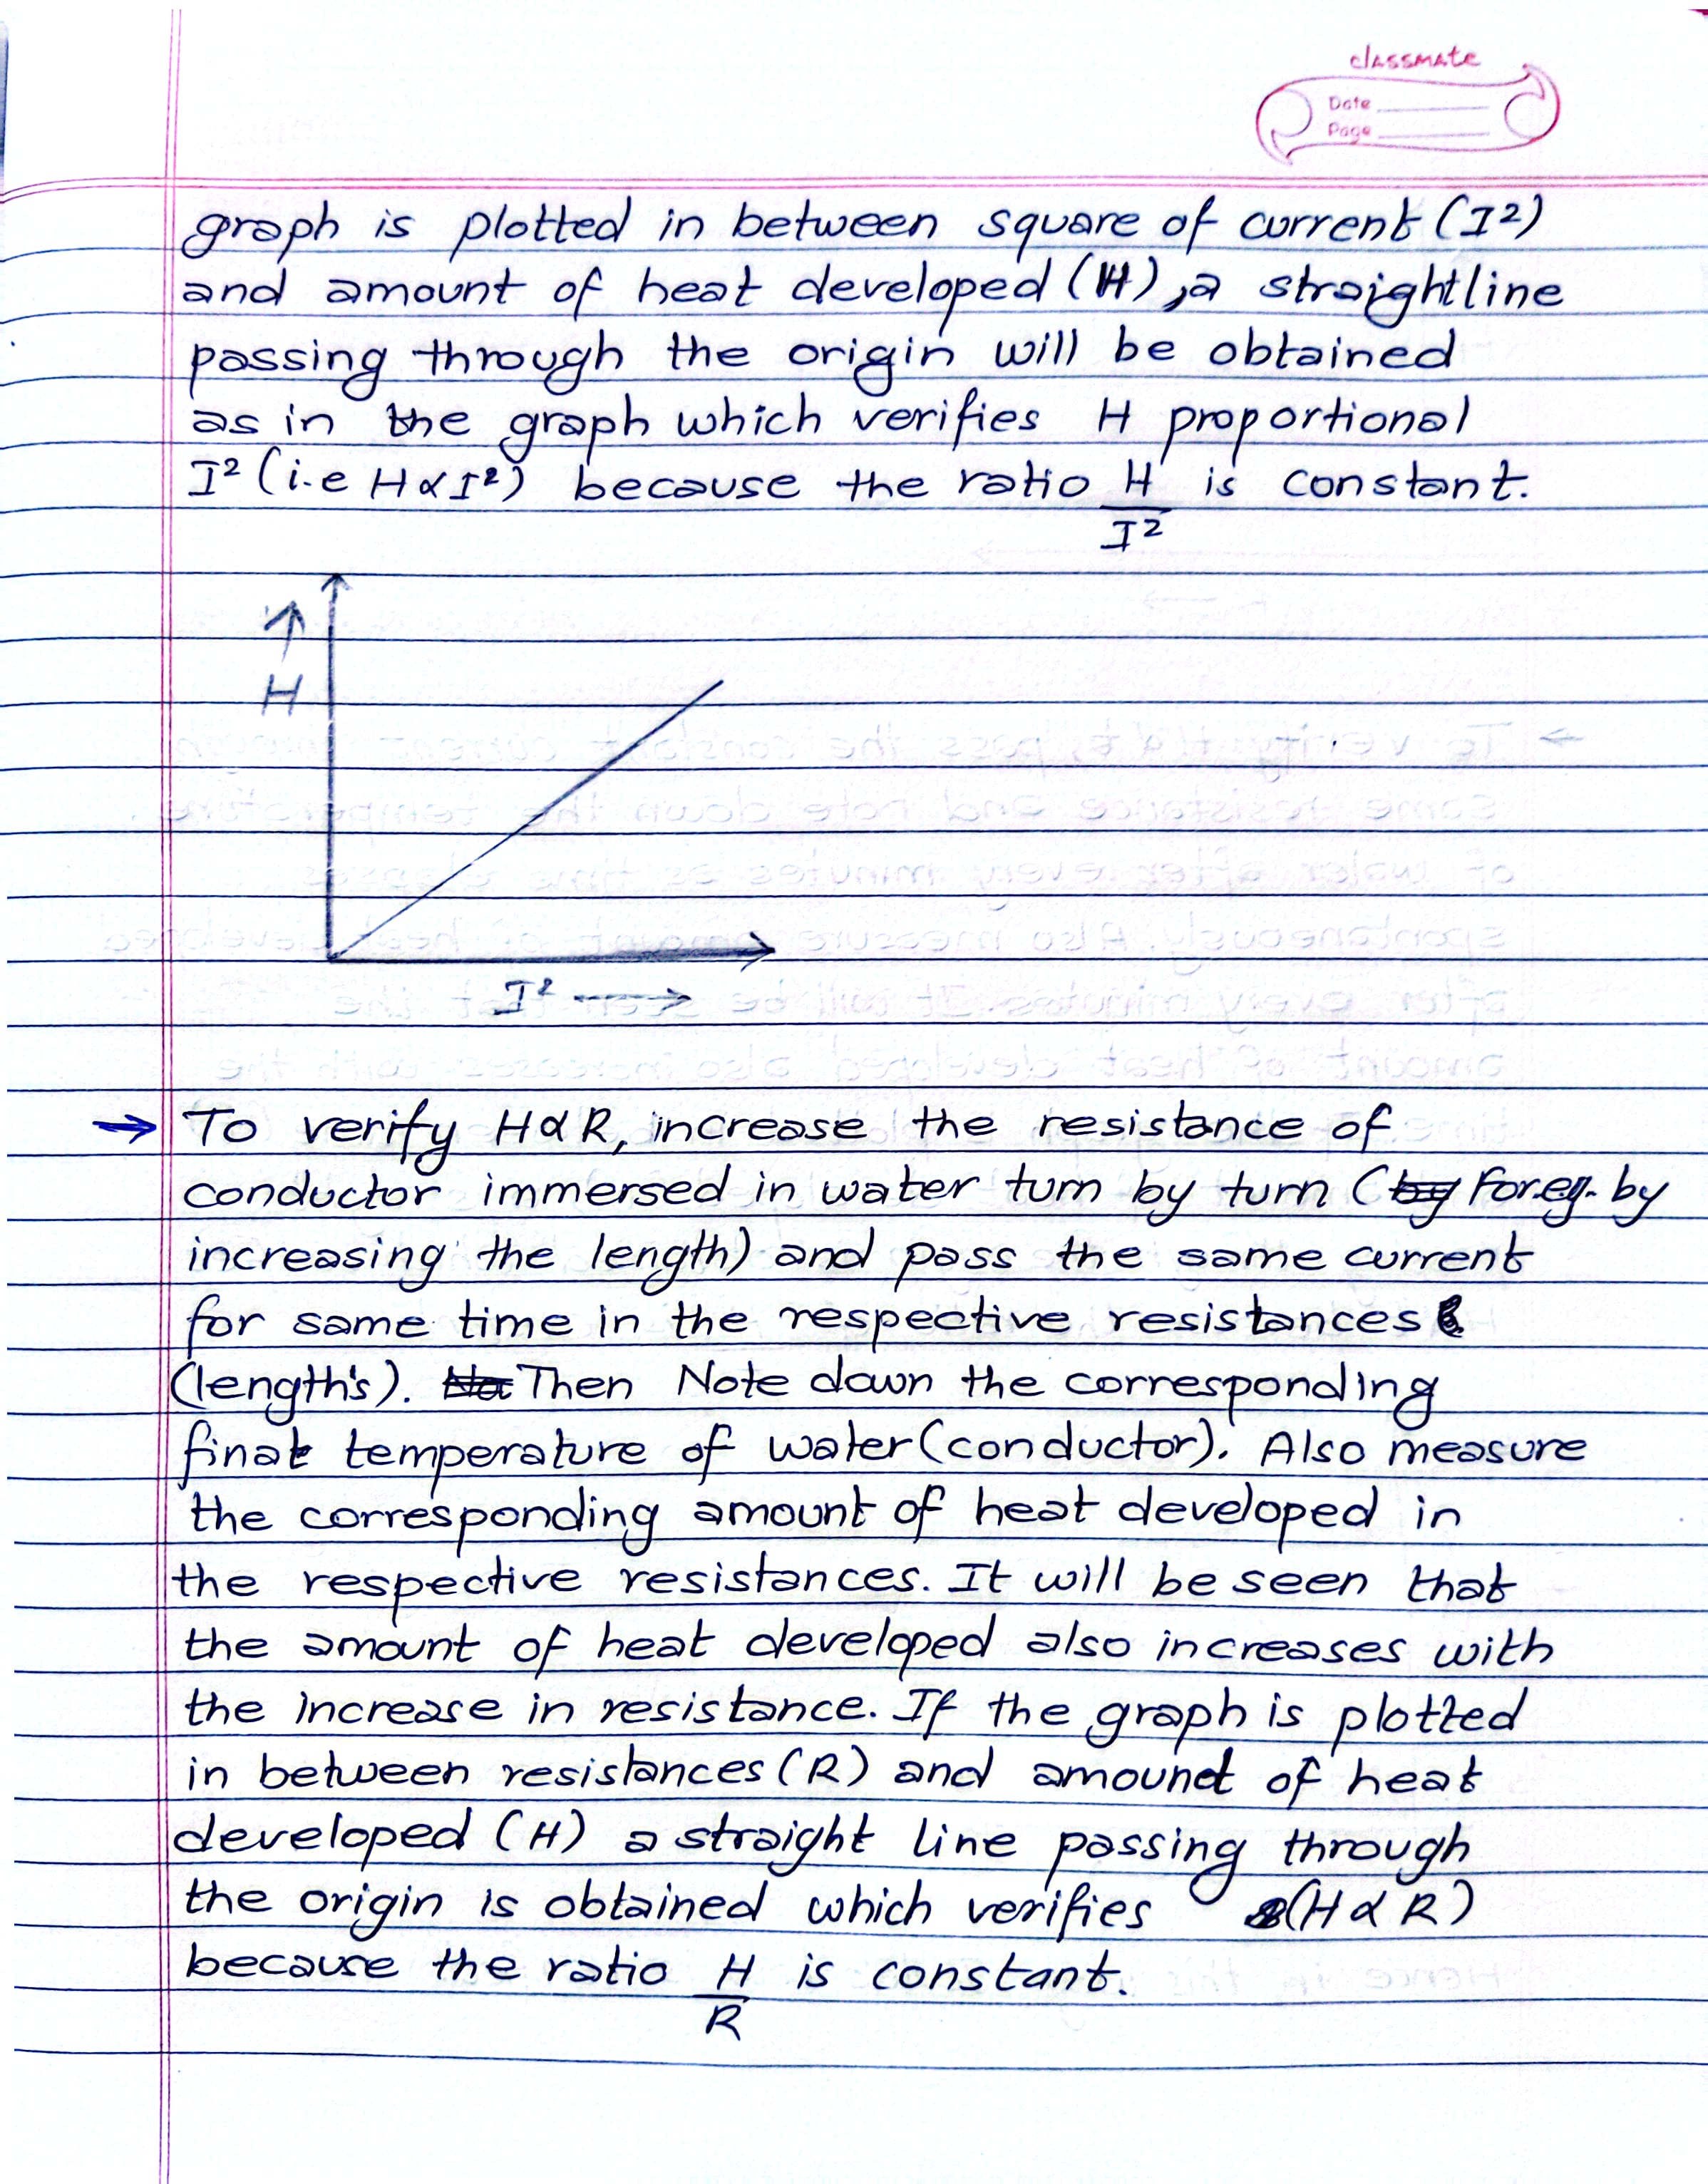 classmate
Date
Page
graph is plotted in between square of current (I²)
and amount of heat developed (H), a straightline
passing through the origin will be obtained
as in the graph which verifies H proportional
I² (i.e H∝I²) because the ratio H/I² is constant.
H
I²
→ To verify H∝R, increase the resistance of
conductor immersed in water turn by turn (by For eg. by
increasing the length) and pass the same current
for same time in the respective resistances
(length's). Then Note down the corresponding
final temperature of water (conductor). Also measure
the corresponding amount of heat developed in
the respective resistances. It will be seen that
the amount of heat developed also increases with
the increase in resistance. If the graph is plotted
in between resistances (R) and amount of heat
developed (H) a straight line passing through
the origin is obtained which verifies (H∝R)
because the ratio H/R is constant.